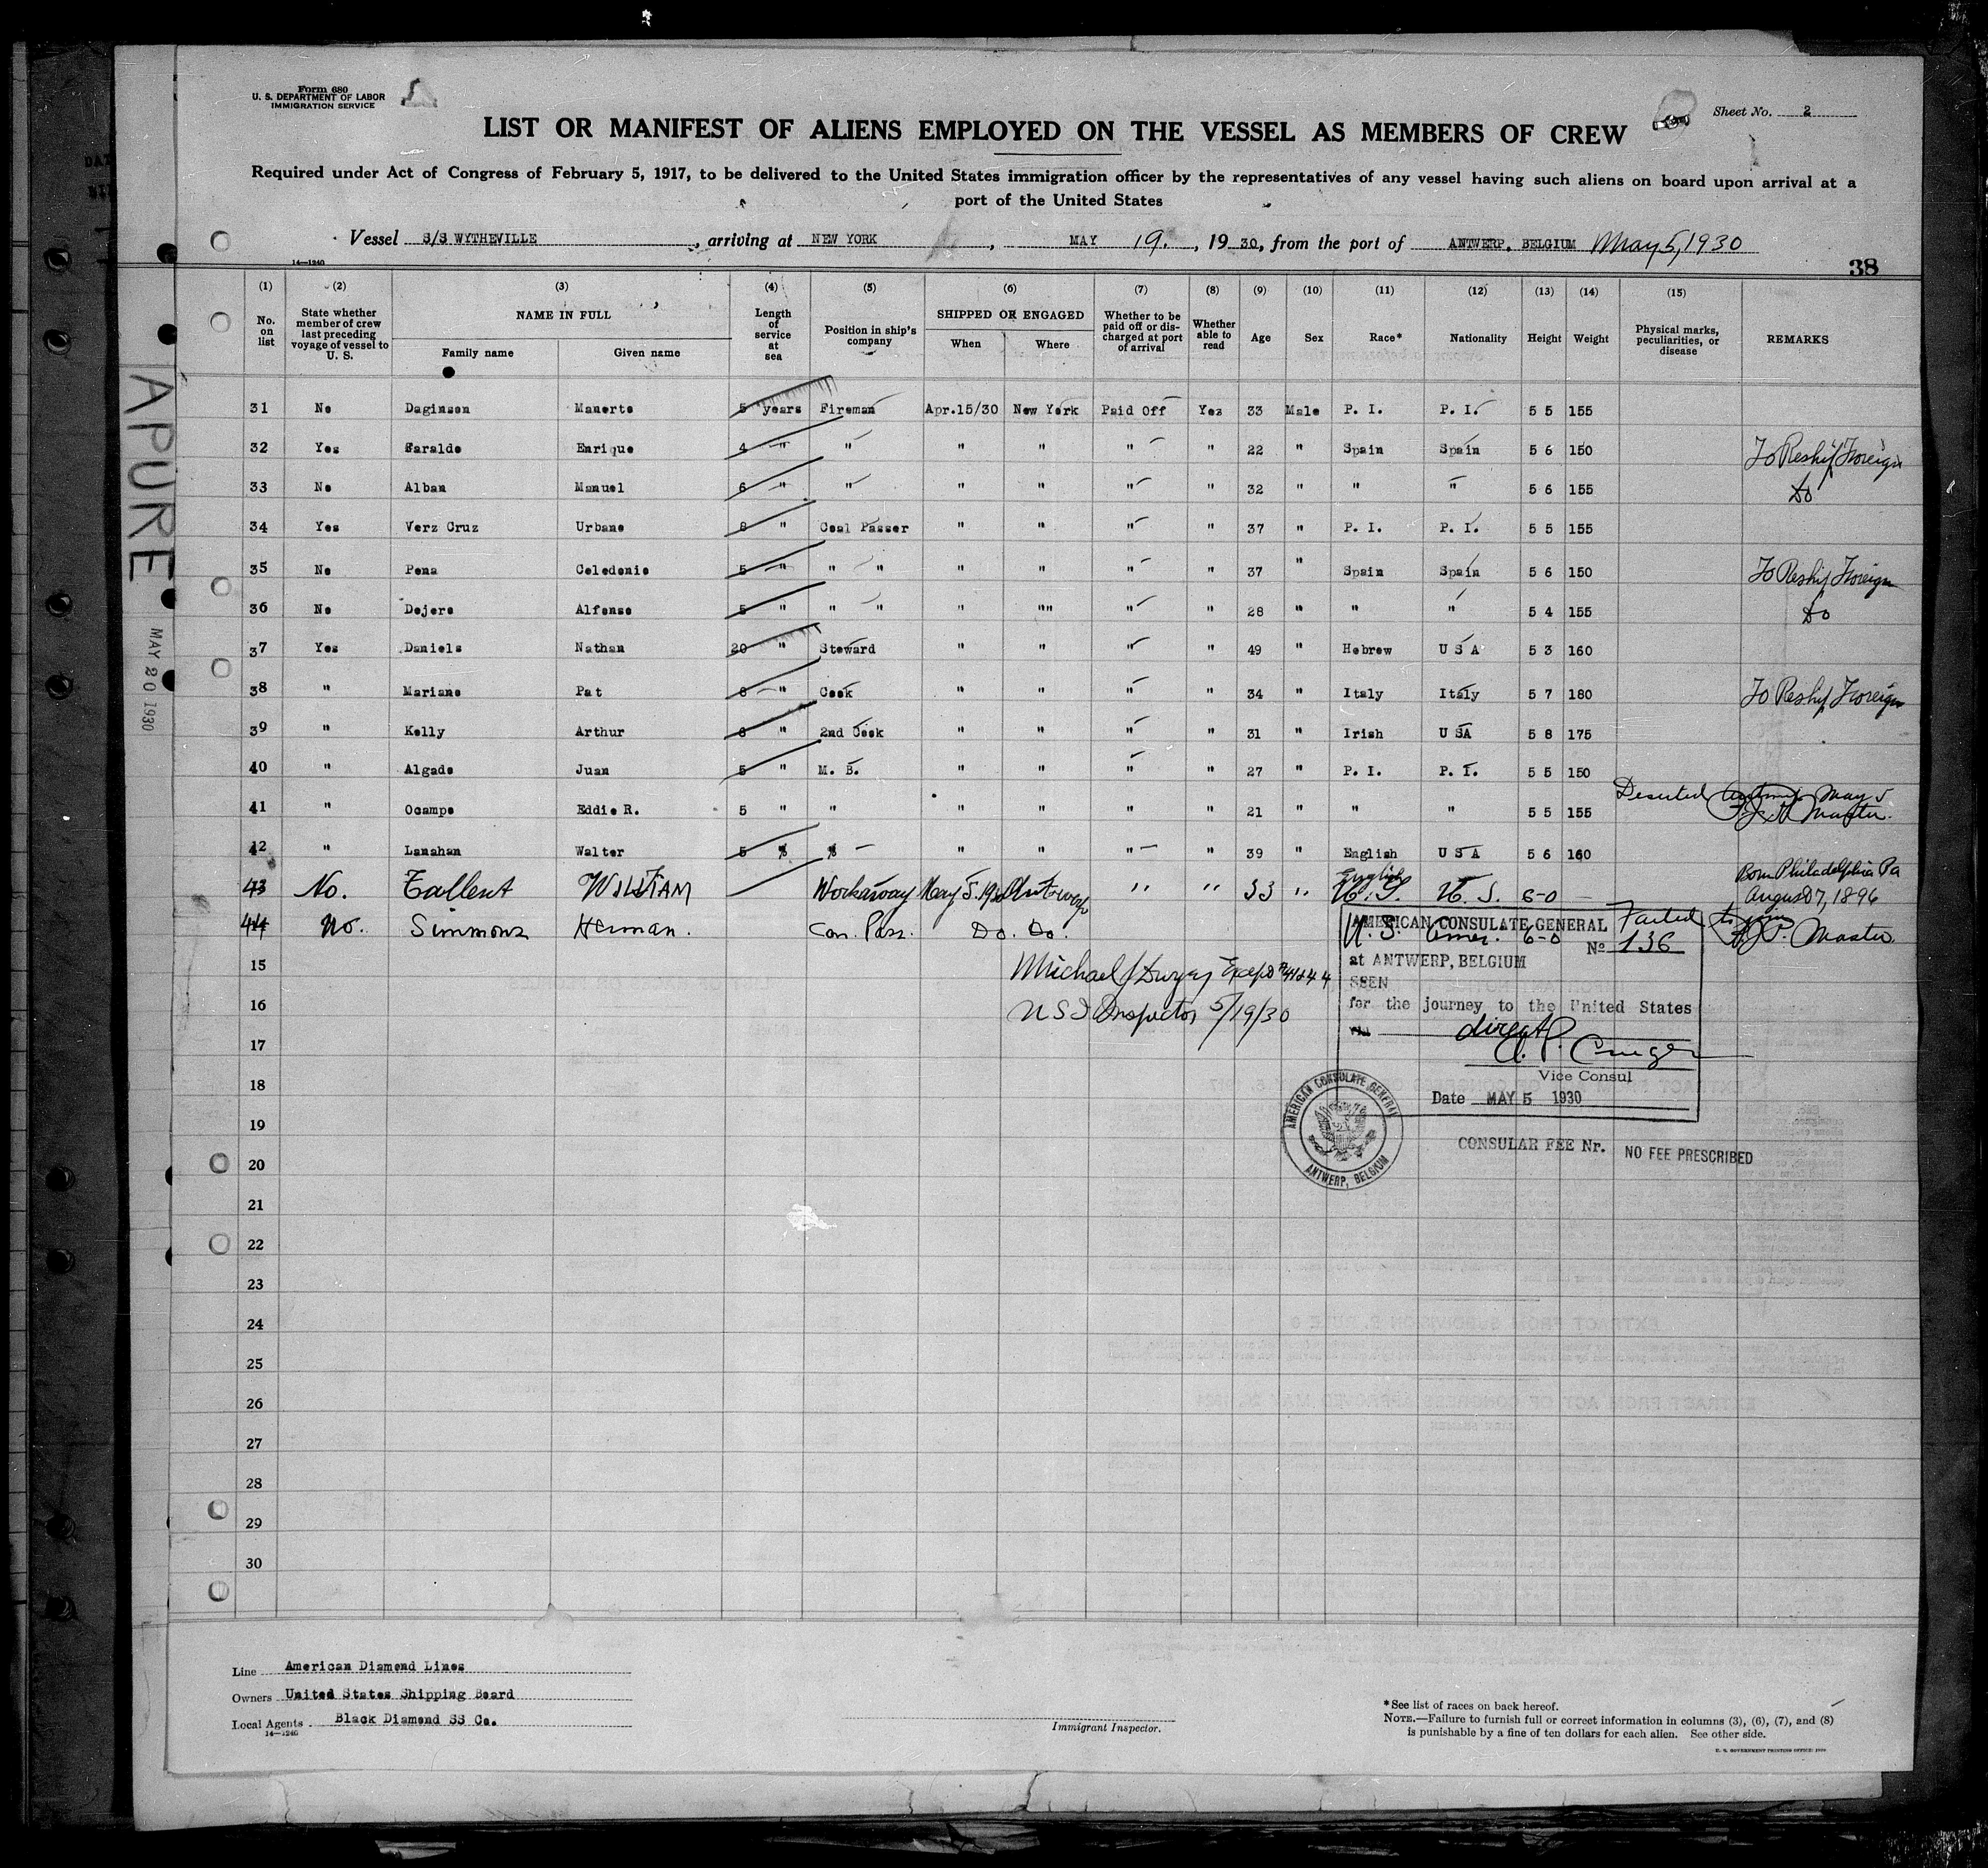 Form 680
U. S. DEPARTMENT OF LABOR
IMMIGRATION SERVICE
Sheet No. 2
LIST OR MANIFEST OF ALIENS EMPLOYED ON THE VESSEL AS MEMBERS OF CREW
Required under Act of Congress of February 5, 1917, to be delivered to the United States immigration officer by the representatives of any vessel having such aliens on board upon arrival at a
port of the United States
Vessel S/S WYTHEVILLE, arriving at NEW YORK, MAY 19., 1930, from the port of ANTWERP, BELGIUM May 5, 1930
14—1240
38
(1) (2) (3) (4) (5) (6) (7) (8) (9) (10) (11) (12) (13) (14) (15)
No. on list State whether member of crew last preceding voyage of vessel to U. S. NAME IN FULL Family name Given name Length of service at sea Position in ship's company SHIPPED OR ENGAGED When Where Whether to be paid off or discharged at port of arrival Whether able to read Age Sex Race* Nationality Height Weight Physical marks, peculiarities, or disease REMARKS
31 No Daginson Manerto 5 years Fireman Apr.15/30 New York Paid Off Yes 33 Male P. I. P. I. 5 5 155
32 Yes Faralde Enrique 4 " " " " " " 22 " Spain Spain 5 6 150 To Reship Foreign
33 No Alban Manuel 6 " " " " " " 32 " " " 5 6 155 Do
34 Yes Verz Cruz Urbano 8 " Coal Passer " " " " 37 " P. I. P. I. 5 5 155
35 No Pena Celedonio 5 " " " " " " " 37 " Spain Spain 5 6 150 To Reship Foreign
36 No Dejero Alfonso 5 " " " " "" " " 28 " " " 5 4 155 Do
37 Yes Daniels Nathan 20 " Steward " " " " 49 " Hebrew U S A 5 3 160
38 " Mariano Pat 6 " Cook " " " " 34 " Italy Italy 5 7 180 To Reship Foreign
39 " Kelly Arthur 8 " 2nd Cook " " " " 31 " Irish U SA 5 8 175
40 " Algado Juan 5 " M. B. " " " " 27 " P. I. P. I. 5 5 150
41 " Ocampo Eddie R. 5 " " " " " " 21 " " " 5 5 155 Deserted Antwerp May 5 Master.
42 " Lanahan Walter 5 " " " " " " 39 " English U S A 5 6 160
43 No. Tallent WILLIAM Workaway May 5. 1930 Antwerp " " 33 " English U. S. U. S. 6-0 Born Philadelphia Pa August 7, 1896
44 No. Simmons Herman. Con. Pass. Do. Do. U. S. Amer. 6-0 Failed to join Master.
15 Michael J Dwyer Except #41 & 44
16 U S I Inspector 5/19/30
17
18
19
20
21
22
23
24
25
26
27
28
29
30
AMERICAN CONSULATE GENERAL
No 136
at ANTWERP, BELGIUM
SEEN
for the journey to the United States
via direct
Vice Consul
Date MAY 5 1930
AMERICAN CONSULATE GENERAL
ANTWERP, BELGIUM
CONSULAR FEE Nr. NO FEE PRESCRIBED
APURE
MAY 20 1930
Line American Diamond Lines
Owners United States Shipping Board
Local Agents Black Diamond SS Co.
14—1240
Immigrant Inspector.
*See list of races on back hereof.
NOTE.—Failure to furnish full or correct information in columns (3), (6), (7), and (8)
is punishable by a fine of ten dollars for each alien. See other side.